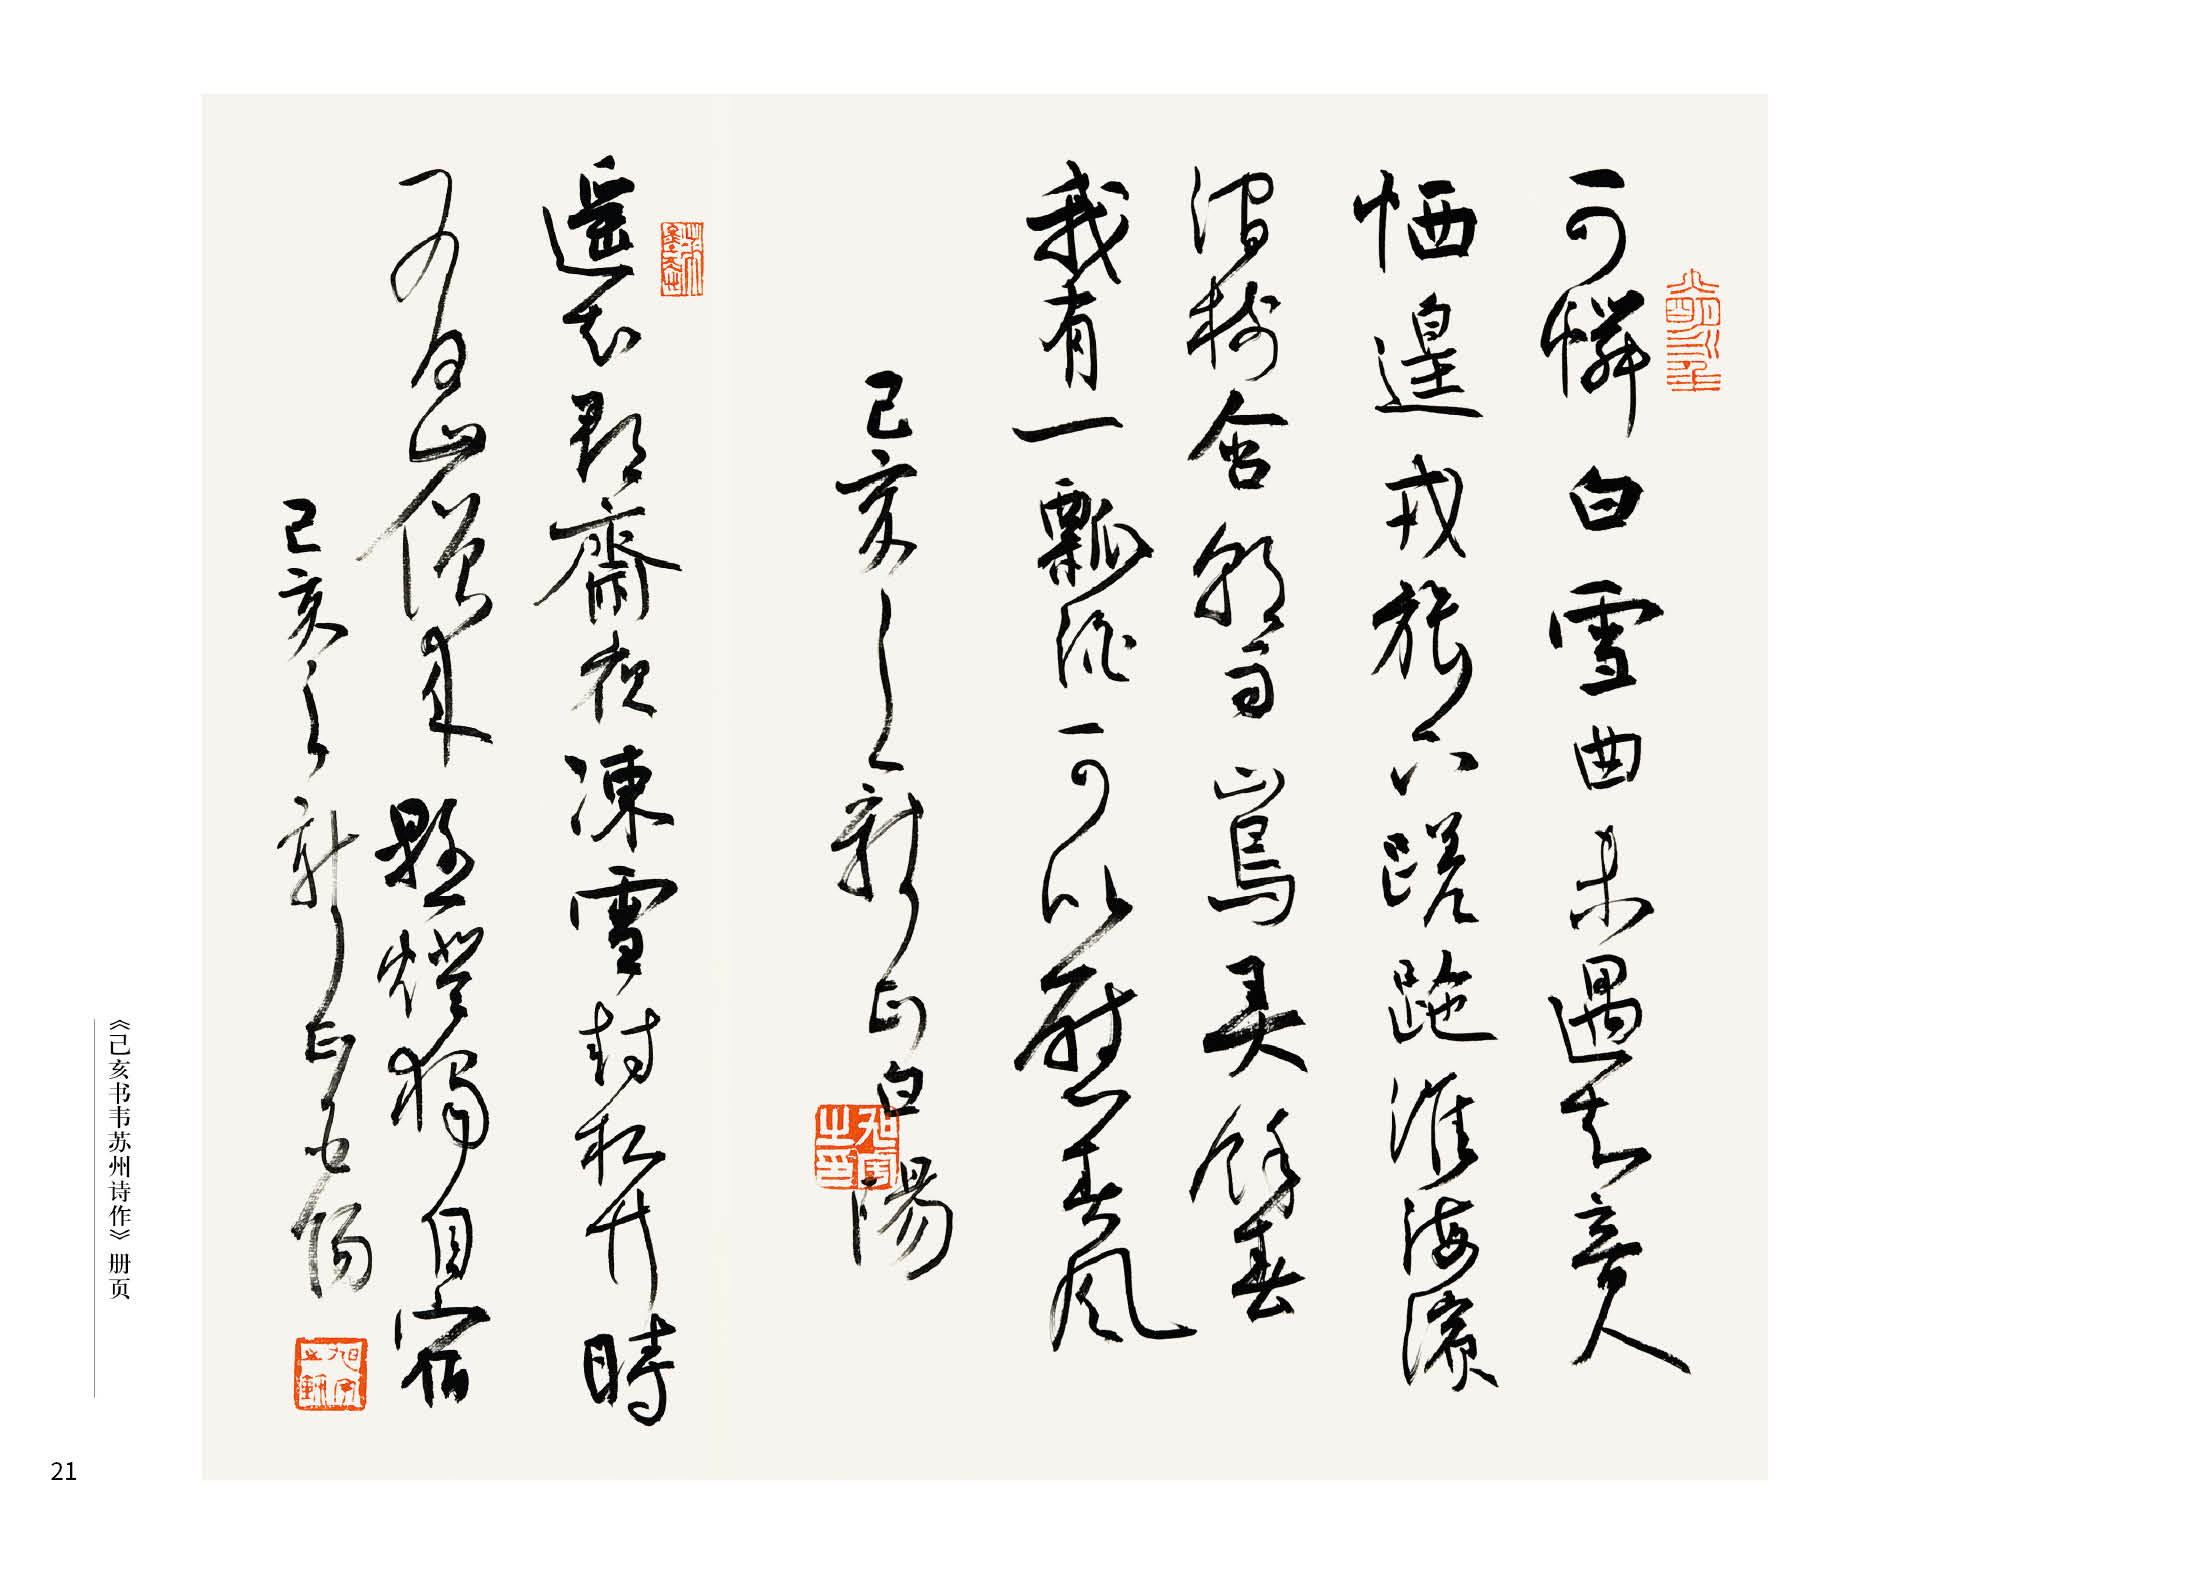 可憐白雪曲未遇知音人
恓遑戎旅下蹉跎淮海濱
澗樹含朝雨山鳥弄餘春
我有一瓢酒可以慰春風
己亥之新正白陽
旭宇之印
遙知郡齋夜凍雪封松竹時
有山僧來懸燈獨自宿
己亥之新正白陽
《己亥书韦苏州诗作》册页
21